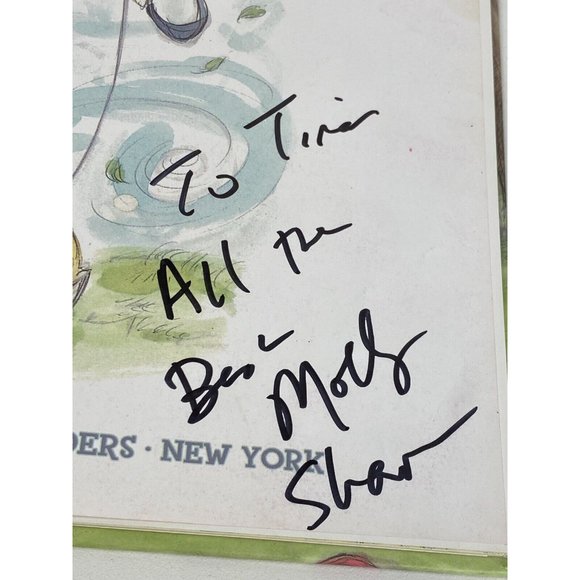 To Tina
All the
Best Molly
DERS · NEW YORK
Shan